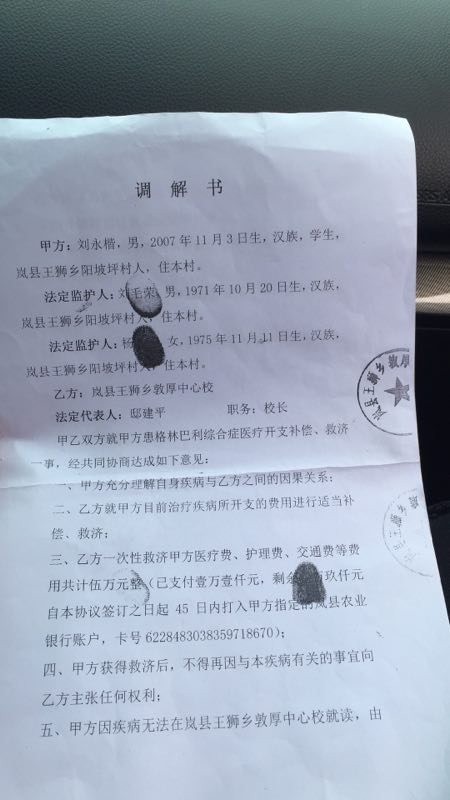 调解书
甲方：刘永楷，男，2007年11月3日生，汉族，学生，
岚县王狮乡阳坡坪村人，住本村。
法定监护人：刘毛荣，男，1971年10月20日生，汉族，
岚县王狮乡阳坡坪村人，住本村。
法定监护人：杨 女，1975年11月11日生，汉族，
岚县王狮乡阳坡坪村人，住本村。
乙方：岚县王狮乡敦厚中心校
法定代表人：邸建平 职务：校长
甲乙双方就甲方患格林巴利综合症医疗开支补偿、救济
一事，经共同协商达成如下意见：
一、甲方充分理解自身疾病与乙方之间的因果关系；
二、乙方就甲方目前治疗疾病所开支的费用进行适当补
偿、救济；
三、乙方一次性救济甲方医疗费、护理费、交通费等费
用共计伍万元整（已支付壹万壹仟元，剩余 万玖仟元
自本协议签订之日起 45 日内打入甲方指定的岚县农业
银行账户，卡号6228483038359718670）；
四、甲方获得救济后，不得再因与本疾病有关的事宜向
乙方主张任何权利；
五、甲方因疾病无法在岚县王狮乡敦厚中心校就读，由
岚县王狮乡敦厚
王狮乡